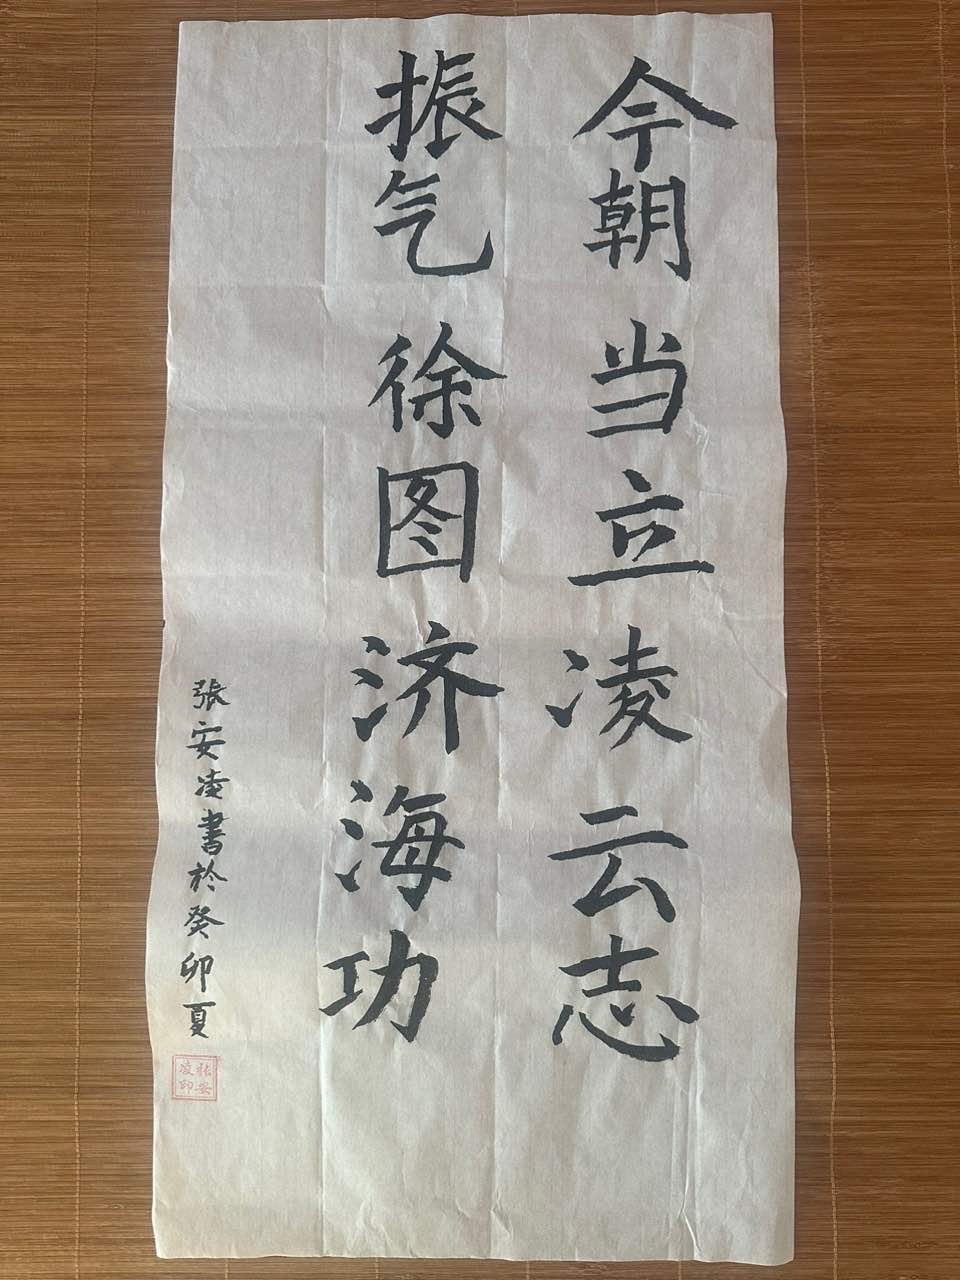 今朝当立凌云志
振气徐图济海功
張安凌書於癸卯夏
張安
凌印